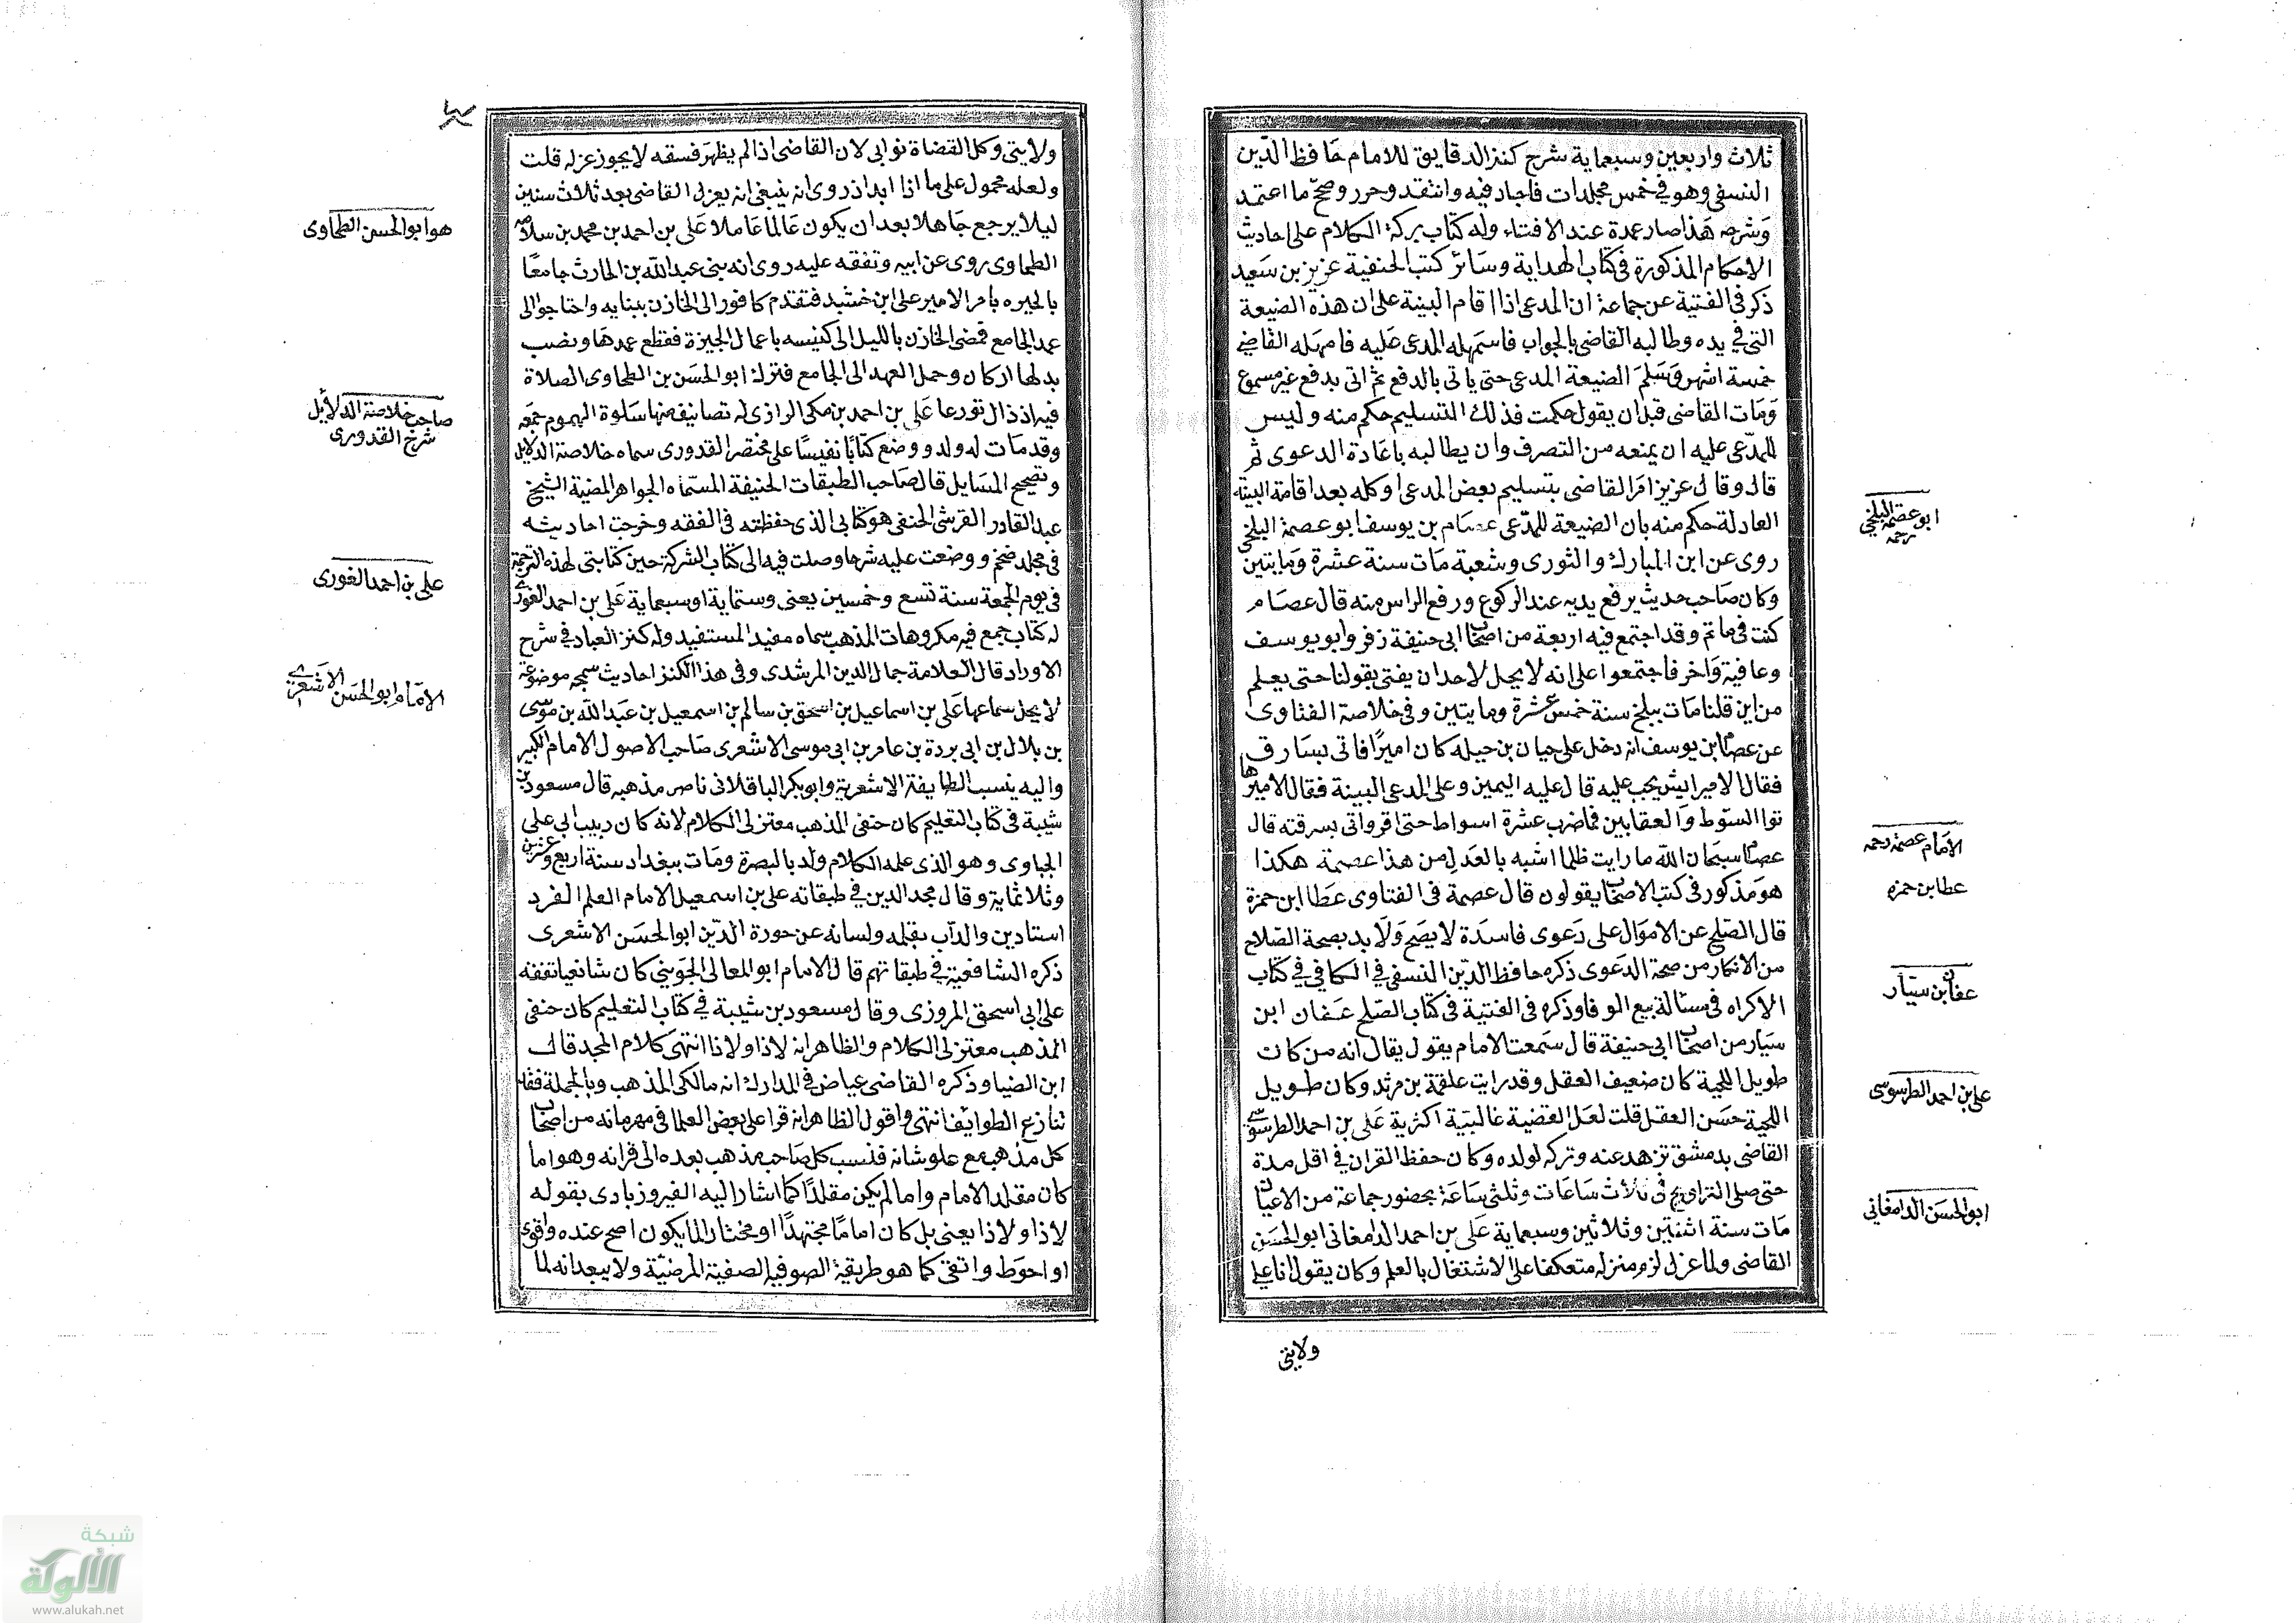 ثلاث واربعين وسبعماية شرح كنز الدقايق للامام حافظ الدين
النسفى وهو فى خمس مجلدات فاجاد فيه وانتقد وحرر وصحح ما اعتمد
وشرحه هذا صار عمدة عند الافتاء وله كتاب بركة الكلام على احاديث
الاحكام المذكورة فى كتاب الهداية وسائر كتب الحنفية عزيز بن سعيد
ذكر فى القنية عن جماعة ان المدعى اذا اقام البينة على ان هذه الضيعة
التى فى يده وطالبه القاضى بالجواب فاستمهله المدعى عليه فامهله القاضى
خمسة اشهر وسلم الضيعة المدعى حتى ياتى بالدفع ثم اتى بدفع غير مسموع
ومات القاضى قبل ان يقول حكمت فذلك التسليم حكم منه وليس
للمدعى عليه ان يمنعه من التصرف وان يطالبه باعادة الدعوى ثم
قال وقال عزيز امر القاضى بتسليم بعض المدعى او كله بعد اقامة البينة
العادلة حكم منه بان الضيعة للمدعى عصام بن يوسف ابو عصمة البلخى
روى عن ابن المبارك والثورى وشعبة مات سنة عشرة ومايتين
وكان صاحب حديث يرفع يديه عند الركوع ورفع الراس منه قال عصام
كنت فى ماتم وقد اجتمع فيه اربعة من اصحاب ابى حنيفة زفر وابو يوسف
وعافية واخر فاجتمعوا على انه لا يحل لاحد ان يفتى بقولنا حتى يعلم
من اين قلنا مات ببلخ سنة خمس عشرة ومايتين وفى خلاصة الفتاوى
عن عصام ابن يوسف انه دخل على حيان بن جبله كان اميرا فاتى بسارق
فقال الامير ايش يجب عليه قال عليه اليمين وعلى المدعى البينة فقال الامير ها
توا السوط والعقابين فما ضرب عشرة اسواط حتى اقر واتى بسرقته قال
عصام سبحان الله ما رايت ظلما اشبه بالعدل من هذا عصمة هكذا
هو مذكور فى كتب الاصحاب يقولون قال عصمة فى الفتاوى عطا ابن حمزة
قال الصلح عن الاموال على دعوى فاسدة لا يصح ولا بد بصحة الصلاح
من الانكار من صحة الدعوى ذكره حافظ الدين النسفى فى الكافى فى كتاب
الاكراه فى مسئالة بيع الوفا وذكره فى القنية فى كتاب الصلح عفان ابن
سيار من اصحاب ابى حنيفة قال سمعت الامام يقول يقال انه من كان
طويل اللحية كان ضعيف العقل وقد رايت علقمة بن مرثد وكان طويل
اللحية حسن العقل قلت لعل القضية غالبية اكثرية على بن احمد الطرسوسى
القاضى بدمشق تزهد عنه وتركه لولده وكان حفظ القران فى اقل مدة
حتى صلى التراويح فى ثلاث ساعات وثلثى ساعة بحضور جماعة من الاعيان
مات سنة اثنتين وثلاثين وسبعماية على بن احمد الدامغانى ابو الحسن
القاضى ولما عزل لزم منزله متعكفا على الاشتغال بالعلم وكان يقول انا على
ولايتى
ابو عصمة البلخى رحمه
الامام عصمة رحمه
عطا بن حمزه
عفان بن سيار
على بن احمد الطرسوسى
ابو الحسن الدامغانى
ولايتى وكل القضاة نوابى لان القاضى اذا لم يظهر فسقه لا يجوز عزله قلت
ولعله محمول على ما اذا ابد اذ روى انه ينبغى انه يعزل القاضى بعد ثلاث سنين
ليلا يرجع جاهلا بعد ان يكون عالما عاملا على بن احمد بن محمد بن سلامه
الطحاوى روى عن ابيه وتفقه عليه روى انه بنى عبد الله بن الحارث جامعا
بالجيره بامر الامير على ابن خشيد فتقدم كافور الى الخازن ببنايه واحتاجوا الى
عمد الجامع فمضى الخازن بالليل الى كنيسه باعمال الجيزة فقطع عمدها ونصب
بدلها اركان وحمل العهد الى الجامع فترك ابو الحسن بن الطحاوى الصلاة
فيه اذ ذاك تورعا على بن احمد بن مكى الرازى له تصانيف منها سلوة الهموم جمعه
وقد مات له ولد ووضع كتابا نفيسا على مختصر القدورى سماه خلاصة الدلايل
وتصحيح المسايل قال صاحب الطبقات الحنيفة المسماه الجواهر المضية الشيخ
عبد القادر القرشى الحنفى هو كتابى الذى حفظته فى الفقه وخرجت احاديثه
فى مجلد ضخم ووضعت عليه شرحا وصلت فيه الى كتاب الشركة حين كتابتى لهذه الترجمة
فى يوم الجمعة سنة تسع وخمسين يعنى وستماية او سبعماية على بن احمد الغورى
له كتاب جمع فيه مكروهات المذهب سماه مفيد المستفيد وله كنز العباد فى شرح
الاوراد قال العلامة جمال الدين المرشدى وفى هذا الكنز احاديث سمجه موضوعة
لا يحل سماعها على بن اسماعيل بن اسحق بن سالم بن اسمعيل بن عبد الله بن موسى
بن بلال بن ابى بردة بن عامر بن ابى موسى الاشعرى صاحب الاصول الامام الكبير
واليه ينسب الطايفة الاشعرية وابو بكر الباقلانى ناصر مذهبه قال مسعود بن
شيبة فى كتاب التعليم كان حنفى المذهب معتزلى الكلام لانه كان ربيب ابى على
الجباوى وهو الذى علمه الكلام ولد بالبصرة ومات ببغداد سنة اربع وعشرين
وثلاثماية وقال مجد الدين فى طبقاته على بن اسمعيل الامام العلم الفرد
استاد ين والداب بقلمه ولسانه عن حوزة الدين ابو الحسن الاشعرى
ذكره الشافعية فى طبقاتهم قال الامام ابو المعالى الجوينى كان شافعيا تفقه
على ابى اسحق المروزى وقال مسعود بن شيبة فى كتاب التعليم كان حنفى
المذهب معتزلى الكلام والظاهر انه لا ذا ولا ذا انتهى كلام المجد قال
ابن الضيا وذكره القاضى عياض فى المدارك انه مالكى المذهب وبالجملة فقد
تنازع الطوايف انتهى واقول الظاهر انه قرا على بعض العلما فى مهرمانه من اصحاب
كل مذهب مع علو شانه فنسب كل صاحب مذهب بعده الى قرانه وهو اما
كان مقلد الامام واما لم يكن مقلدا كما اشار اليه الفيروزبادى بقوله
لا ذا ولا ذا يعنى بل كان اماما مجتهدا او مختارا لما يكون اصح عنده واقوى
او احوط واتقى كما هو طريقة الصوفية الصفية المرضية ولا يبعد انه لما
هو ابو الحسن الطحاوى
صاحب خلاصة الدلايل
شرح القدورى
على بن احمد الغورى
الامام ابو الحسن الاشعرى
شبكة
الألوكة
www.alukah.net